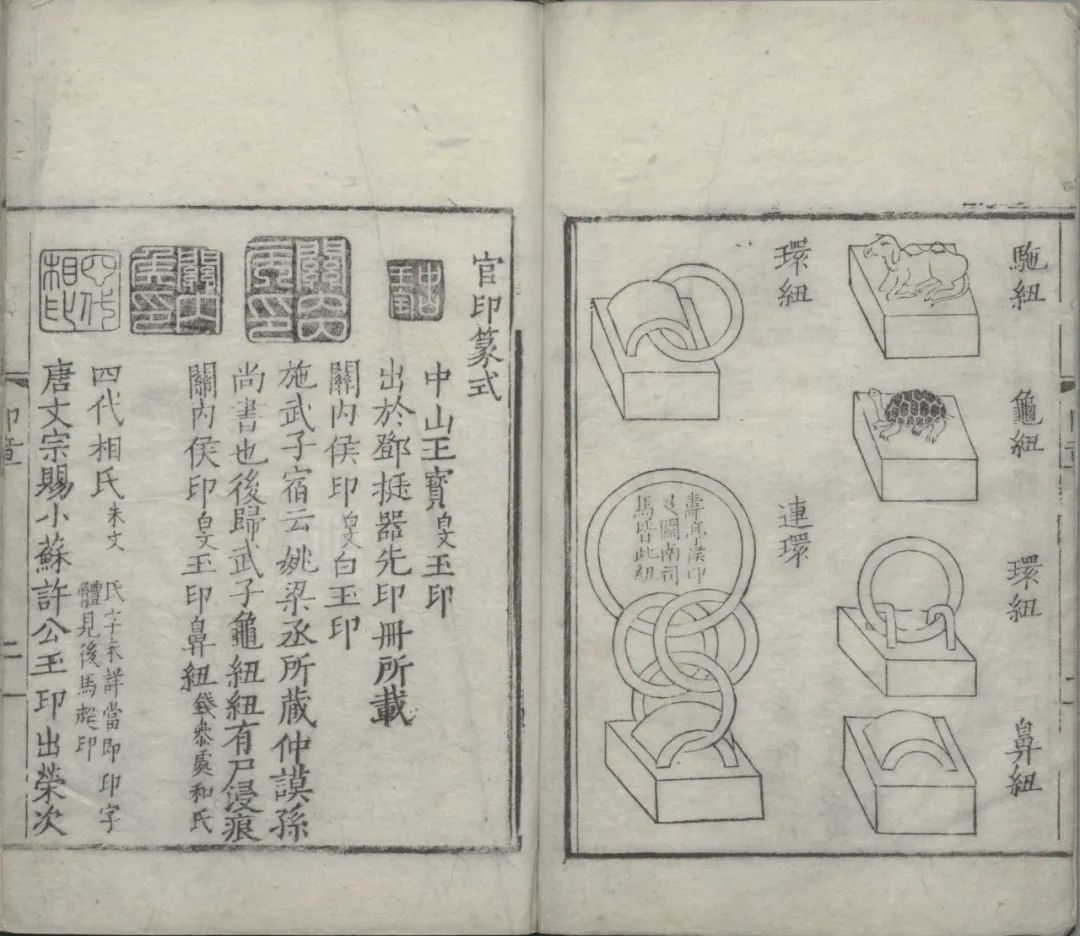 駞紐
龜紐
環紐
鼻紐
環紐
連環
壽亭侯印
及關南司
馬皆此紐
官印篆式
中山王寶白文玉印
出於鄧挺器先印冊所載
關內侯印白文白玉印
施武子宿云姚梁丞所蔵仲謨孫
尚書也後歸武子龜紐紐有尸侵痕
關內侯印白文玉印鼻紐錢叅處和氏
四代相氏朱文
氏字未詳當即印字
體見後馬起印
唐文宗賜小蘇許公玉印出榮次
中山王寶
關內侯印
關內侯印
四代相印
印章